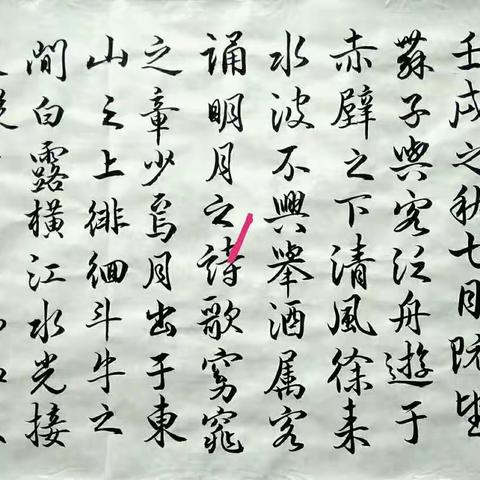 壬戌之秋七月既望
蘇子與客泛舟遊于
赤壁之下清風徐来
水波不興舉酒属客
誦明月之詩歌窈窕
之章少焉月出于東
山之上徘徊斗牛之
間白露橫江水光接